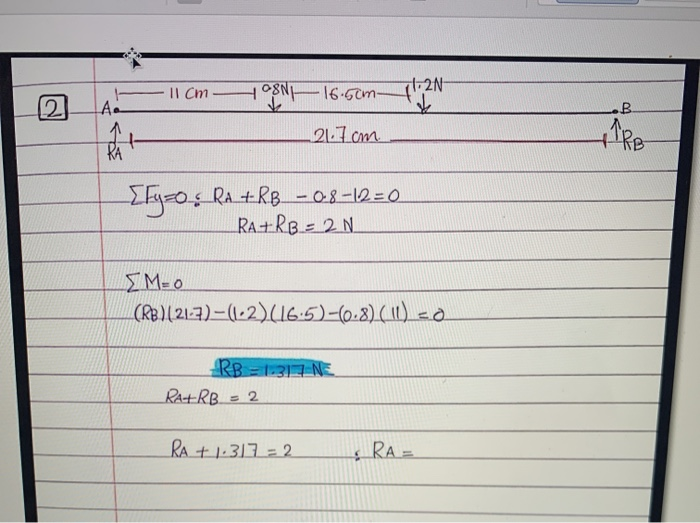 11 cm 0.8N 16.5cm 1.2N
2 A B
RA 21.7 cm RB
ΣFy=0 : RA + RB - 0.8 - 12 = 0
RA + RB = 2 N
ΣM=0
(RB)(21.7) - (1.2)(16.5) - (0.8)(11) = 0
RB = 1.317 N
RA + RB = 2
RA + 1.317 = 2 : RA =